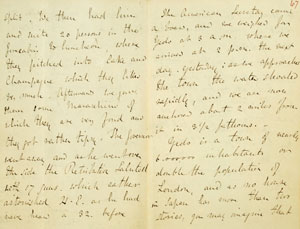 open. We then had him
and
20 persons in the
forecabin to luncheon where
they pitched into Cake and
Champagne which they like
so much. Afterward we gave
them some Maraschino of
which they are very fond and
they got rather tipsy. The
went away and as he went over
the side the Retribution saluted
with 17 guns, which rather
astonished H.E. as he had
never
a 32. before
67
The American Secretary came
on board, and we weighed for
Yedo at 3 a.m. where we
arrived at 2 p.m. the next
day. Yesterday, as we approached
the town the water shoaled
rapidly, and we are now
anchored about 2 miles from
it in 3 1/2 fathoms.
Yedo is a town of nearly
inhabitants or
double the population of
London, and as no house
in Japan has more than two
stories, you may imagine that